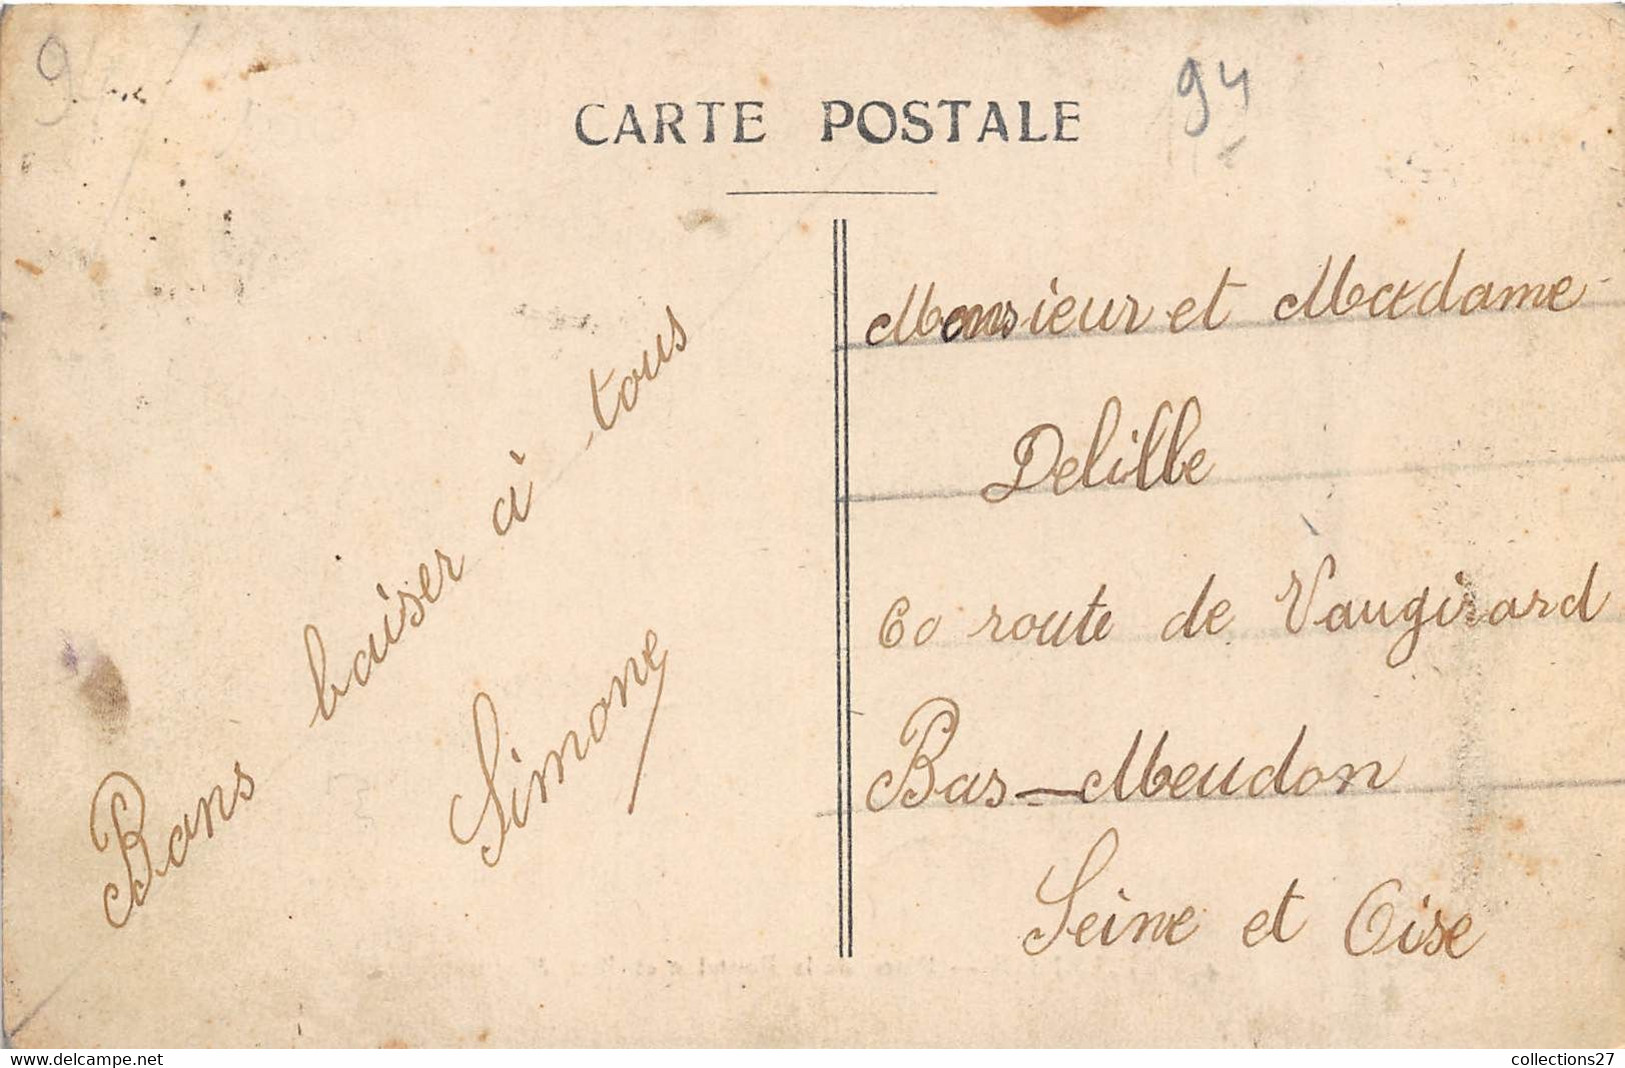 94
CARTE POSTALE
Bons baiser à tous
Simone
Monsieur et Madame
Delille
60 route de Vaugirard
Bas-Meudon
Seine et Oise
www.delcampe.net
collections27